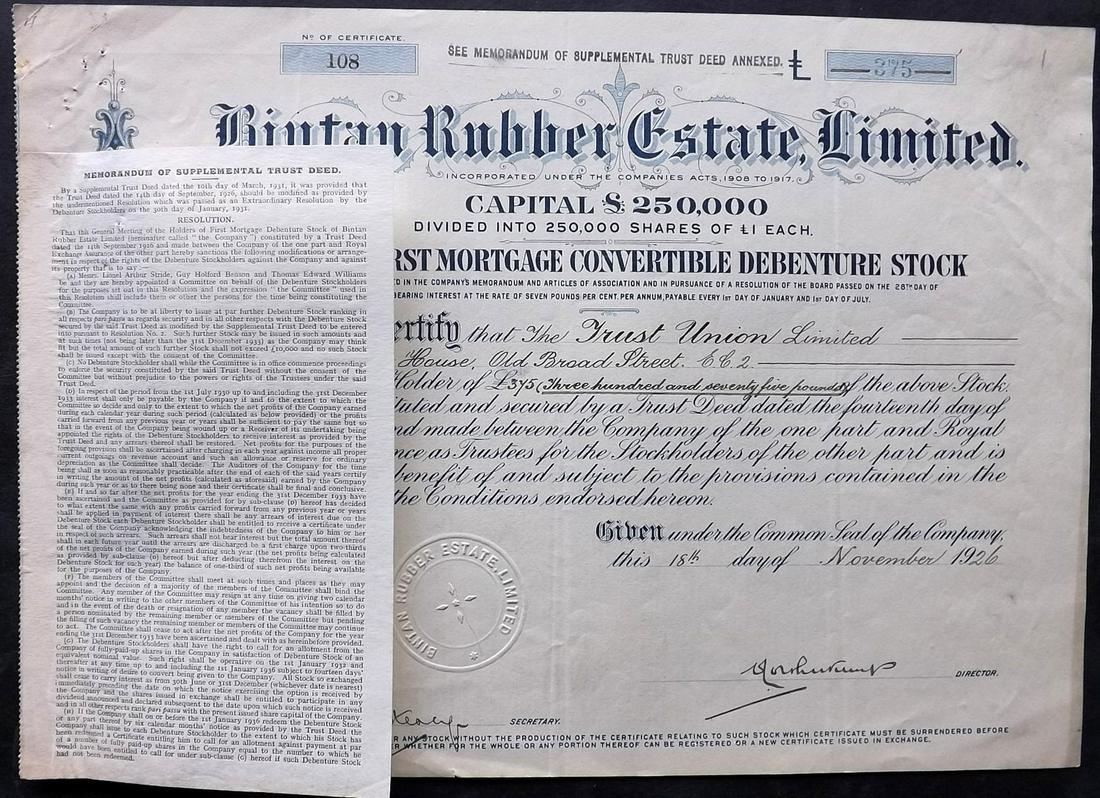 No OF CERTIFICATE.
108
SEE MEMORANDUM OF SUPPLEMENTAL TRUST DEED ANNEXED.
£ 375
Bintan Rubber Estate, Limited.
INCORPORATED UNDER THE COMPANIES ACTS, 1908 TO 1917.
CAPITAL £ 250,000
DIVIDED INTO 250,000 SHARES OF £1 EACH.
RST MORTGAGE CONVERTIBLE DEBENTURE STOCK
ED IN THE COMPANY'S MEMORANDUM AND ARTICLES OF ASSOCIATION AND IN PURSUANCE OF A RESOLUTION OF THE BOARD PASSED ON THE 28TH DAY OF
BEARING INTEREST AT THE RATE OF SEVEN POUNDS PER CENT. PER ANNUM, PAYABLE EVERY 1ST DAY OF JANUARY AND 1ST DAY OF JULY.
ertify that The Trust Union Limited
House, Old Broad Street. E.C.2.
Holder of £375 (Three hundred and seventy five pounds) of the above Stock.
tuted and secured by a Trust Deed dated the fourteenth day of
nd made between the Company of the one part and Royal
nce as Trustees for the Stockholders of the other part and is
benefit of and subject to the provisions contained in the
the Conditions endorsed hereon.
Given under the Common Seal of the Company,
this 18th day of November 1926
BINTAN RUBBER ESTATE LIMITED
DIRECTOR.
SECRETARY.
ANY STOCK WITHOUT THE PRODUCTION OF THE CERTIFICATE RELATING TO SUCH STOCK WHICH CERTIFICATE MUST BE SURRENDERED BEFORE
WHETHER FOR THE WHOLE OR ANY PORTION THEREOF CAN BE REGISTERED OR A NEW CERTIFICATE ISSUED IN EXCHANGE.
MEMORANDUM OF SUPPLEMENTAL TRUST DEED.
By a Supplemental Trust Deed dated the 10th day of March, 1931, it was provided that
the Trust Deed dated the 14th day of September, 1926, should be modified as provided by
the undermentioned Resolution which was passed as an Extraordinary Resolution by the
Debenture Stockholders on the 30th day of January, 1931.
RESOLUTION.
That this General Meeting of the Holders of First Mortgage Debenture Stock of Bintan
Rubber Estate Limited (hereinafter called "the Company") constituted by a Trust Deed
dated the 14th September 1926 and made between the Company of the one part and Royal
Exchange Assurance of the other part hereby sanctions the following modifications or arrange-
ment in respect of the rights of the Debenture Stockholders against the Company and against
its property that is to say:—
(A) Messrs. Lionel Arthur Stride, Guy Holford Benson and Thomas Edward Williams
be and they are hereby appointed a Committee on behalf of the Debenture Stockholders
for the purposes set out in this Resolution and the expression "the Committee" used in
this Resolution shall include them or other the persons for the time being constituting the
Committee.
(B) The Company is to be at liberty to issue at par further Debenture Stock ranking in
all respects pari passu as regards security and in all other respects with the Debenture Stock
secured by the said Trust Deed as modified by the Supplemental Trust Deed to be entered
into pursuant to Resolution No. 2. Such further Stock may be issued in such amounts and
at such times (not being later than the 31st December 1933) as the Company may think
fit but the total amount of such further Stock shall not exceed £10,000 and no such Stock
shall be issued except with the consent of the Committee.
(C) No Debenture Stockholder shall while the Committee is in office commence proceedings
to enforce the security constituted by the said Trust Deed without the consent of the
Committee but without prejudice to the powers or rights of the Trustees under the said
Trust Deed.
(D) In respect of the period from the 1st July 1930 up to and including the 31st December
1933 interest shall only be payable by the Company if and to the extent to which the
Committee so decide and only to the extent to which the net profits of the Company earned
during each calendar year during such period (calculated as below provided) or the profits
carried forward from any previous year or years shall be sufficient to pay the same but so
that in the event of the Company being wound up or a Receiver of its undertaking being
appointed the rights of the Debenture Stockholders to receive interest as provided by the
Trust Deed and any arrears thereof shall be restored. Net profits for the purposes of the
foregoing provision shall be ascertained after charging in each year against income all proper
current outgoings on revenue account and such an allowance or reserve for ordinary
depreciation as the Committee shall decide. The Auditors of the Company for the time
being shall as soon as reasonably practicable after the end of each of the said years certify
in writing the amount of the net profits (calculated as aforesaid) earned by the Company
during such year or as to there being none and their certificate shall be final and conclusive.
(E) If and so far after the net profits for the year ending the 31st December 1933 have
been ascertained and the Committee as provided for by sub-clause (D) hereof has decided
to what extent the same with any profits carried forward from any previous year or years
shall be applied in payment of interest there shall be any arrears of interest due on the
Debenture Stock each Debenture Stockholder shall be entitled to receive a certificate under
the seal of the Company acknowledging the indebtedness of the Company to him or her
in respect of such arrears. Such arrears shall not bear interest but the total amount thereof
shall in each future year until the arrears are discharged be a first charge upon two-thirds
of the net profits of the Company earned during such year (the net profits being calculated
as provided by sub-clause (D) hereof but after deducting therefrom the interest on the
Debenture Stock for such year) the balance of one-third of such net profits being available
for the purposes of the Company.
(F) The members of the Committee shall meet at such times and places as they may
appoint and the decision of a majority of the members of the Committee shall bind the
Committee. Any member of the Committee may resign at any time on giving two calendar
months' notice in writing to the other members of the Committee of his intention so to do
and in the event of the death or resignation of any member the vacancy shall be filled by
a person nominated by the remaining member or members of the Committee but pending
the filling of such vacancy the remaining member or members of the Committee may continue
to act. The Committee shall cease to act after the net profits of the Company for the year
ending the 31st December 1933 have been ascertained and dealt with as hereinbefore provided.
(G) The Debenture Stockholders shall have the right to call for an allotment from the
Company of fully-paid-up shares in the Company in satisfaction of Debenture Stock of an
equivalent nominal value. Such right shall be operative on the 1st January 1932 and
thereafter at any time up to and including the 1st January 1936 subject to fourteen days'
notice in writing of desire to convert being given to the Company. All Stock so exchanged
shall cease to carry interest as from 30th June or 31st December (whichever date is nearest)
immediately preceding the date on which the notice exercising the option is received by
the Company and the shares issued in exchange shall be entitled to participate in any
dividend announced and declared subsequent to the date upon which such notice is received
and in all other respects rank pari passu with the present issued share capital of the Company.
(H) If the Company shall on or before the 1st January 1936 redeem the Debenture Stock
or any part thereof by six calendar months' notice as provided by the Trust Deed the
Company shall issue to each Debenture Stockholder to the extent to which his Stock has
been redeemed a Certificate entitling him to call for an allotment against payment at par
of a number of fully paid-up shares in the Company equal to the number to which he
would have been entitled to call for under sub-clause (G) hereof if such Debenture Stock
had not been redeemed.